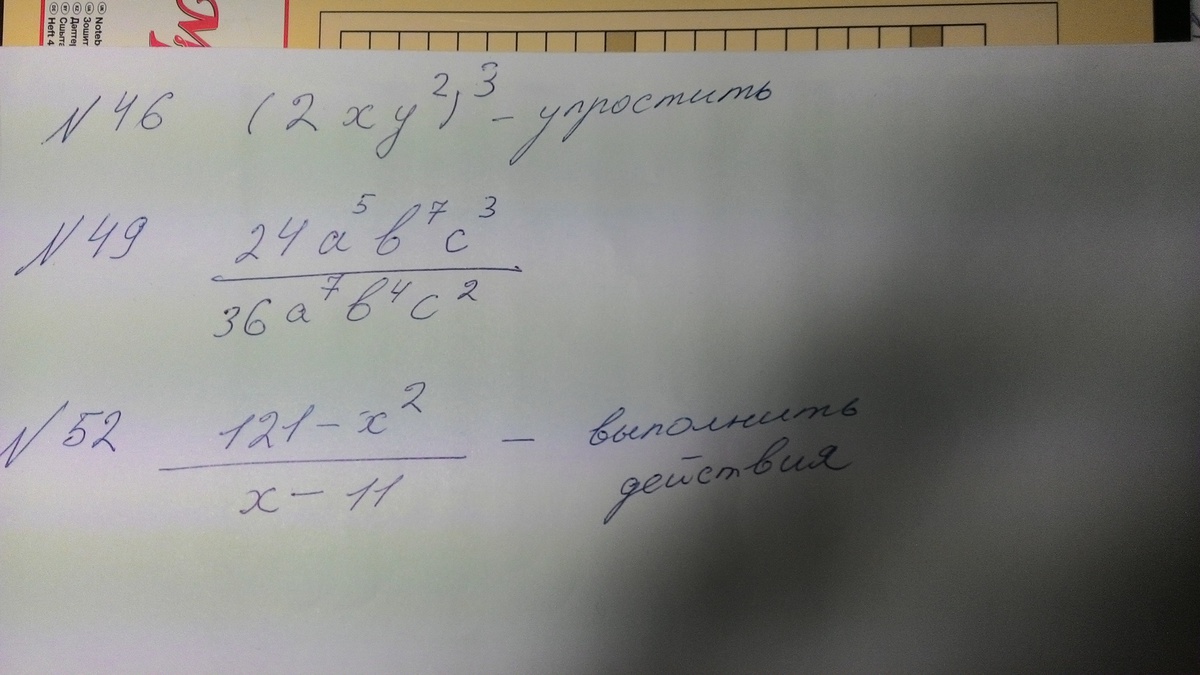 Noteb
Зошит
Дәптер
Сшыта
Heft 4
№46 (2xy²)³ - упростить
№49 24a⁵b⁷c³
36a⁷b⁴c²
№52 121-x² - выполнить
x-11 действия